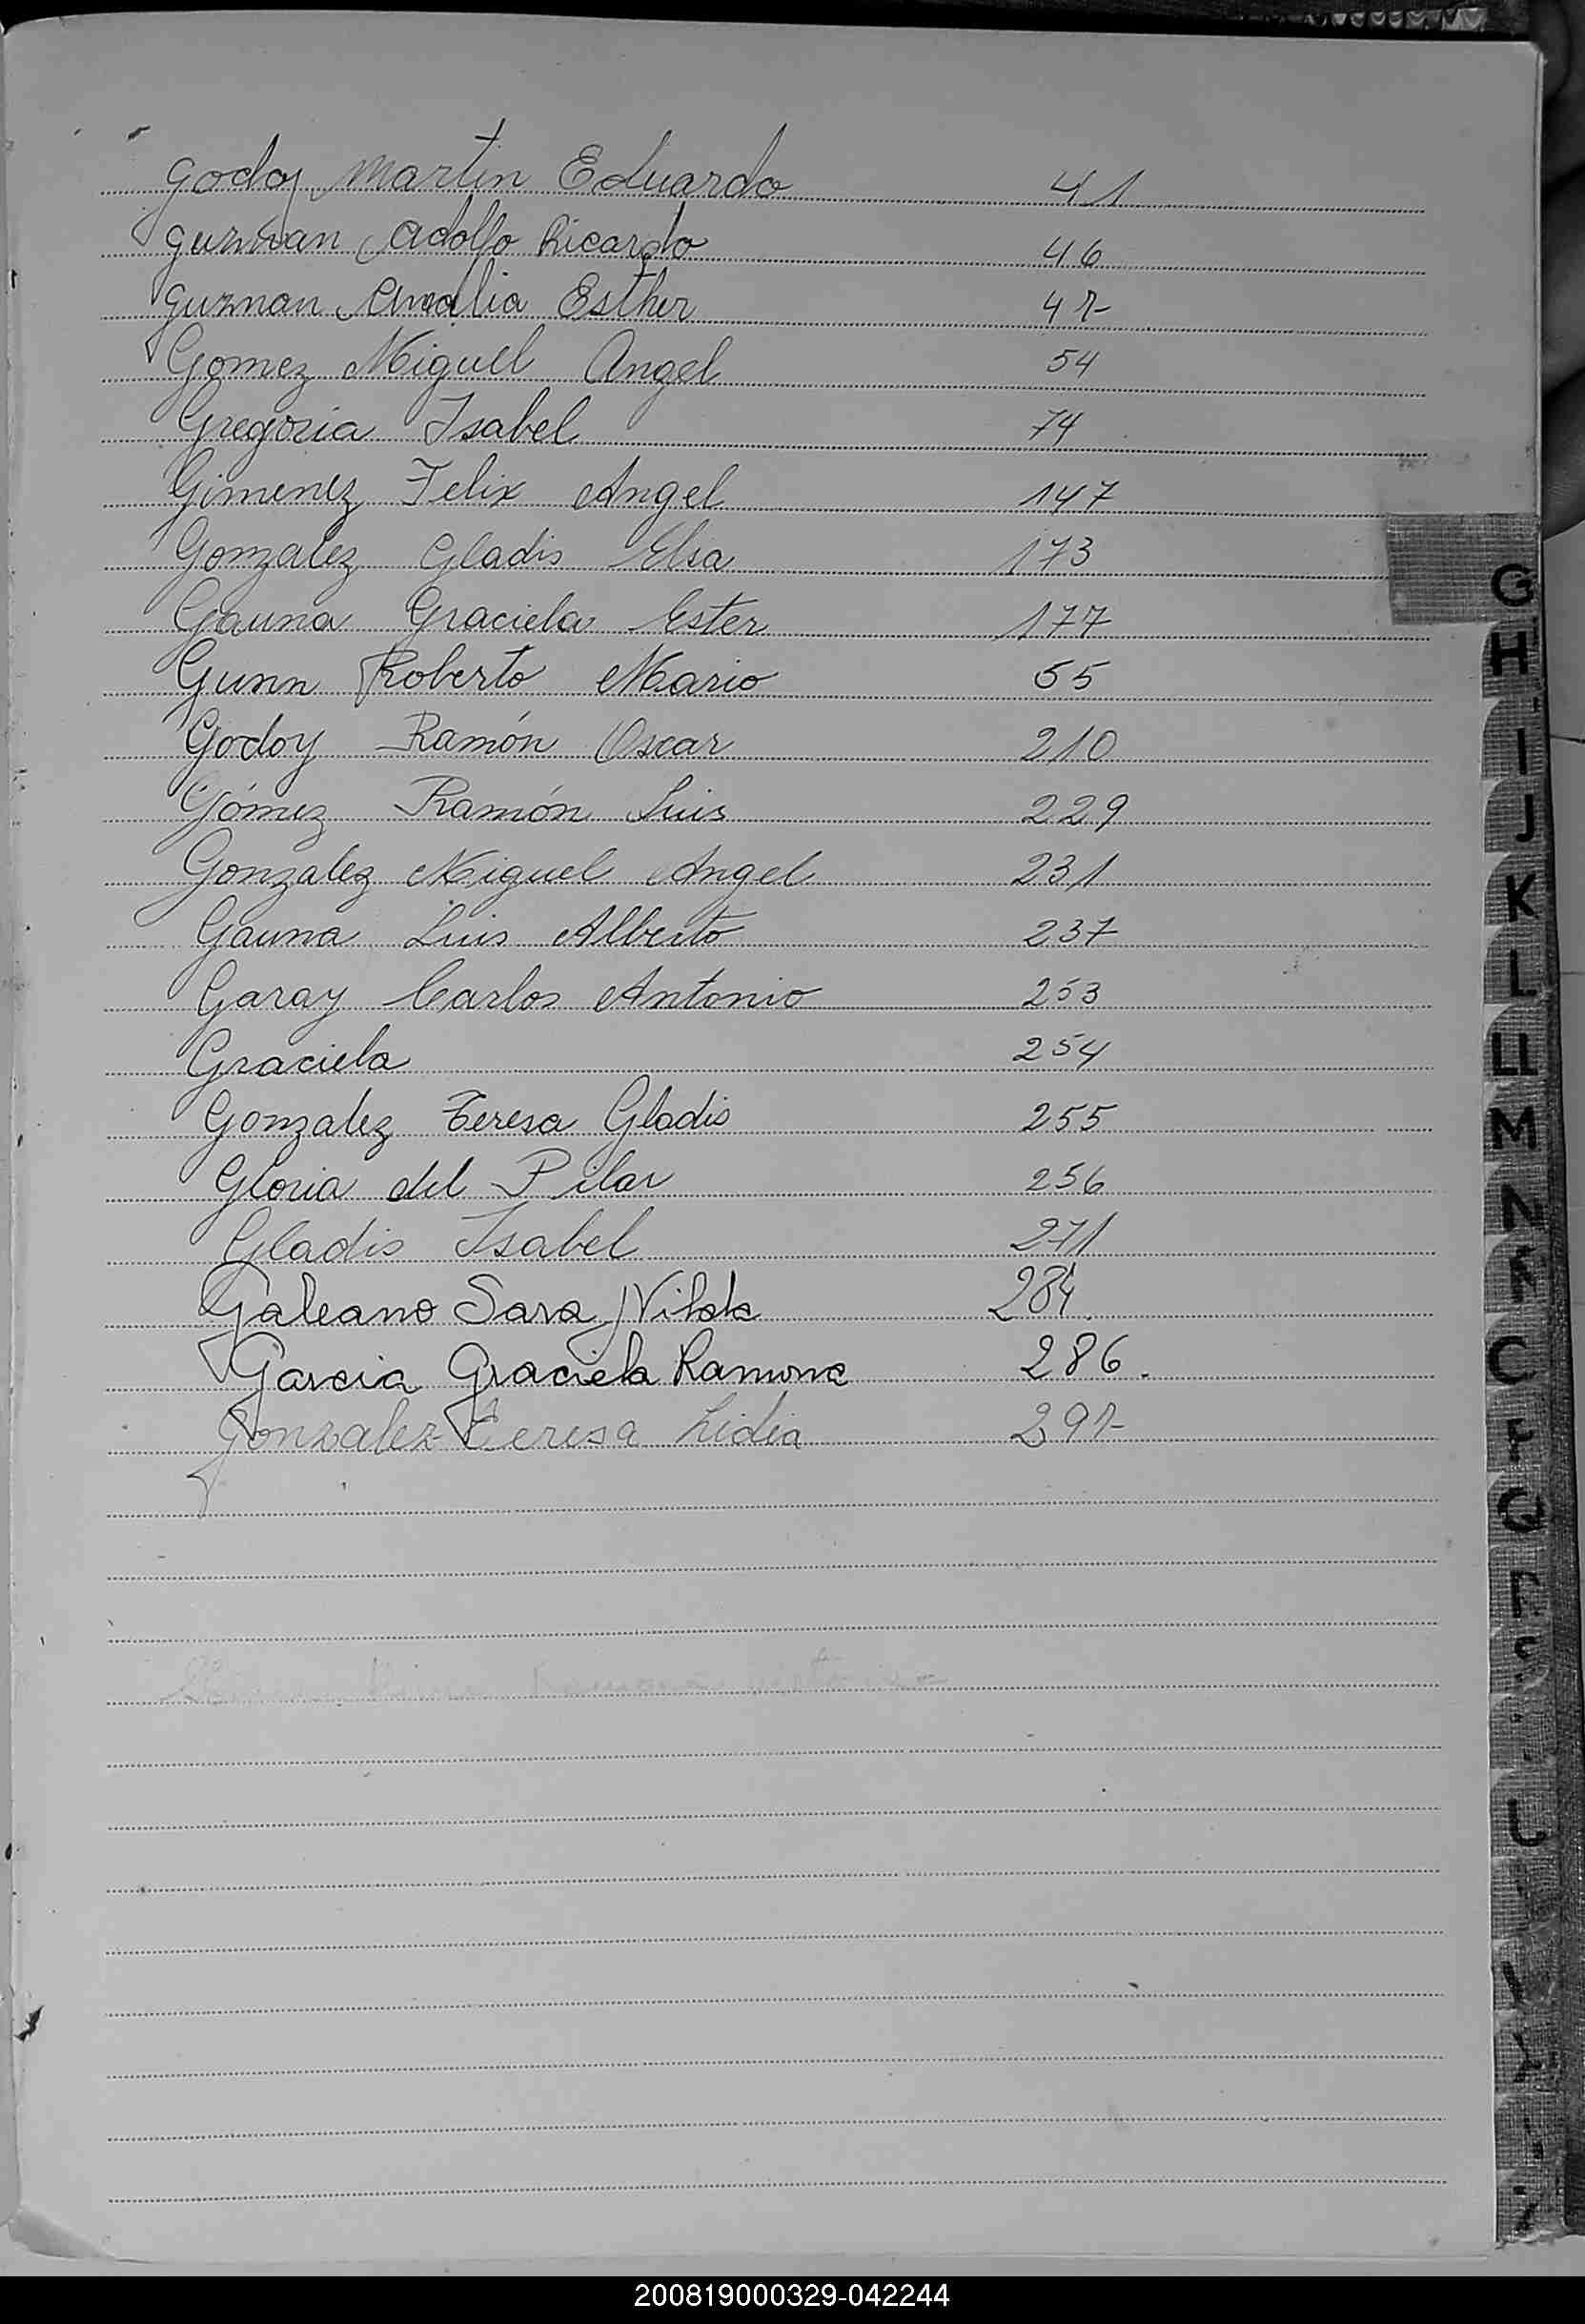 Godoy Martin Eduardo 41
Guzman Adolfo Ricardo 46
Guzman Amalia Esther 47
Gomez Miguel Angel 54
Gregoria Isabel 74
Gimenez Felix Angel 147
Gonzalez Gladis Elsa 173
Gauna Graciela Ester 177
Gunn Roberto Mario 55
Godoy Ramón Oscar 210
Gómez Ramón Luis 229
Gonzalez Miguel Angel 231
Gauna Luis Alberto 237
Garay Carlos Antonio 253
Graciela 254
Gonzalez Teresa Gladis 255
Gloria del Pilar 256
Gladis Isabel 271
Galeano Sara Nilda 284
Garcia Graciela Ramona 286.
Gonzalez Teresa Lidia 297
G
H
I
J
K
L
LL
M
N
Ñ
Q
200819000329-042244